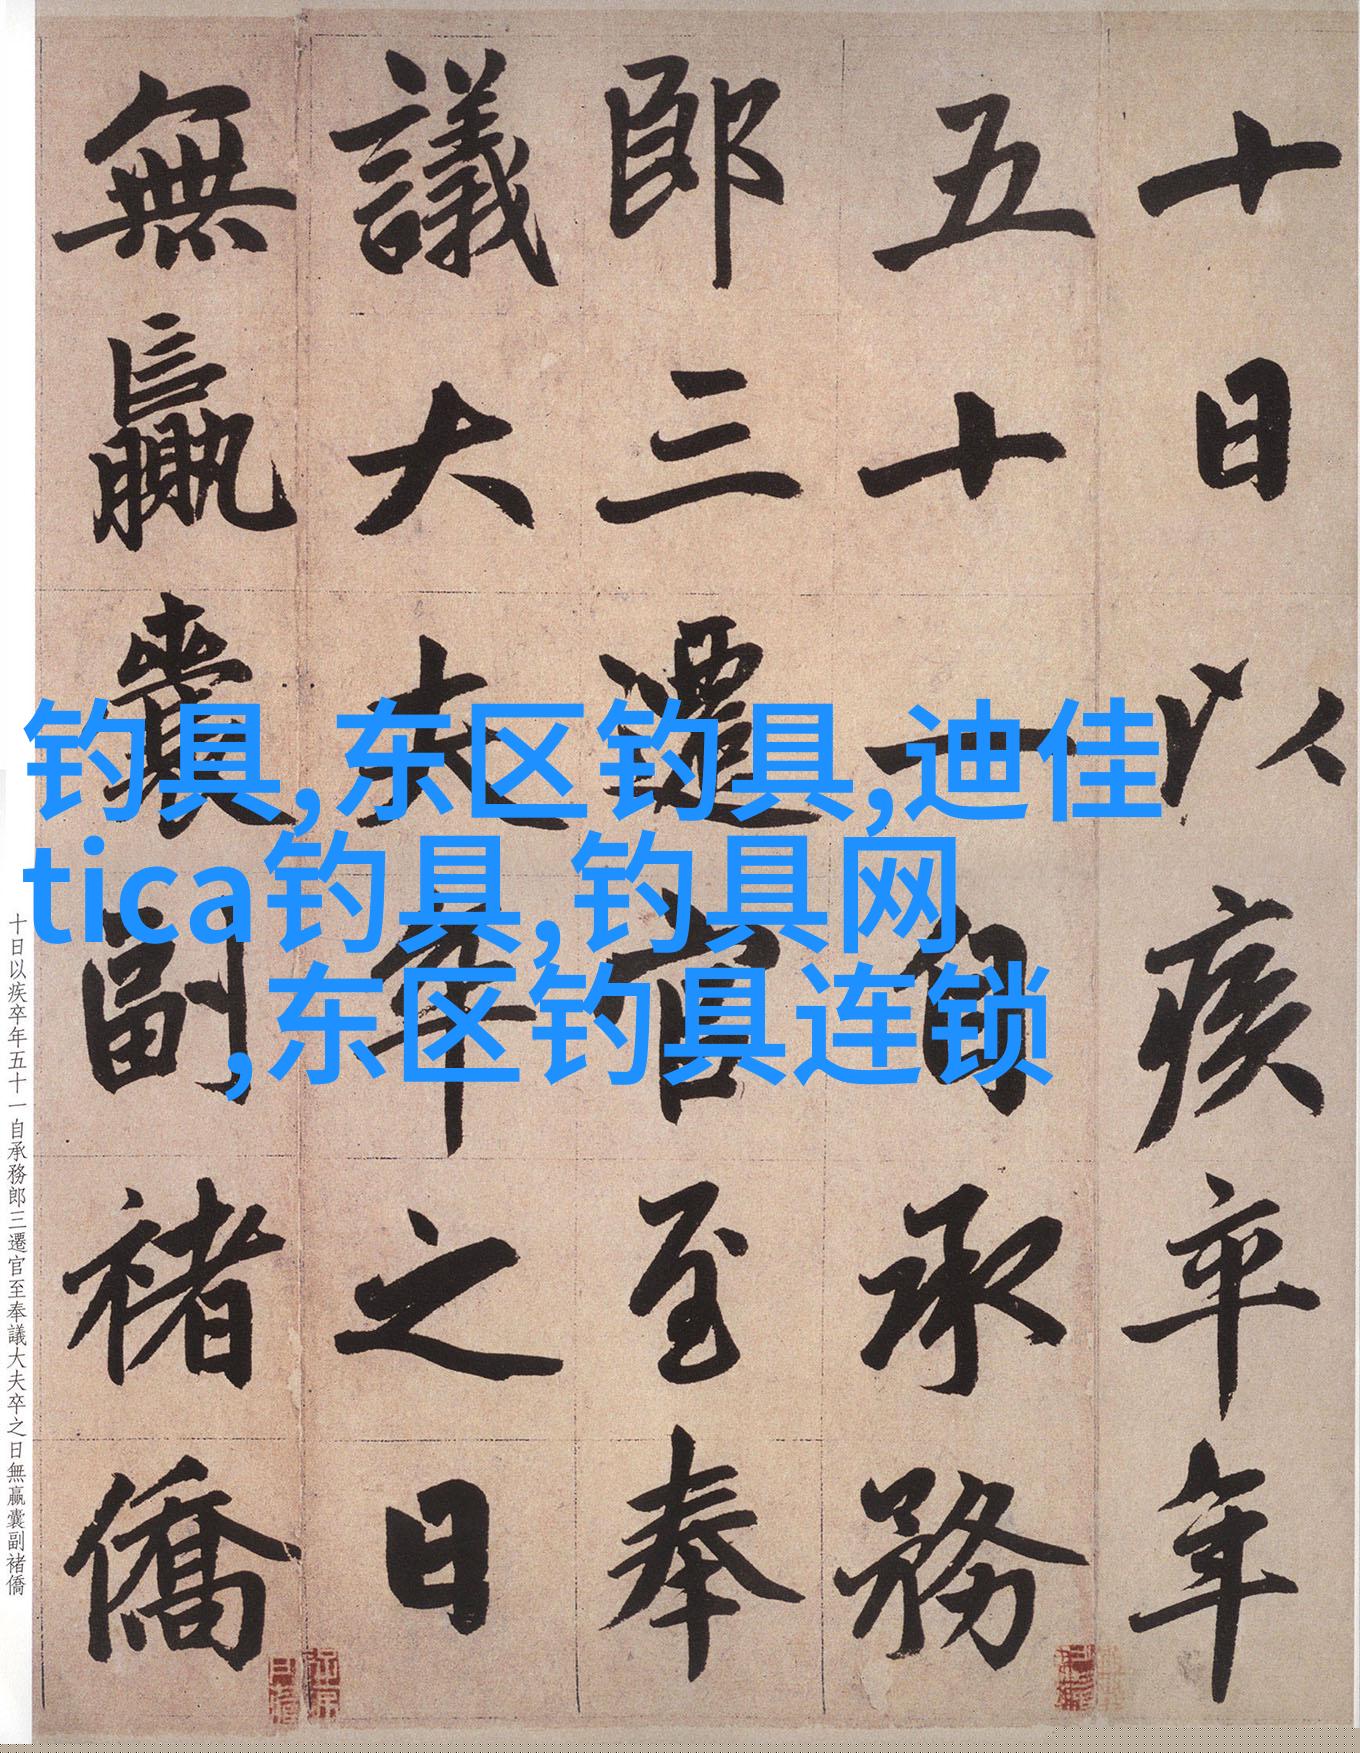 十日以疾卒年
五十一自承務
郎三遷官至奉
議大夫卒之日
無贏囊副褚僑
钓具,东区钓具,迪佳
tica钓具,钓具网
,东区钓具连锁
十日以疾卒年五十一自承務郎三遷官至奉議大夫卒之日無贏囊副褚僑